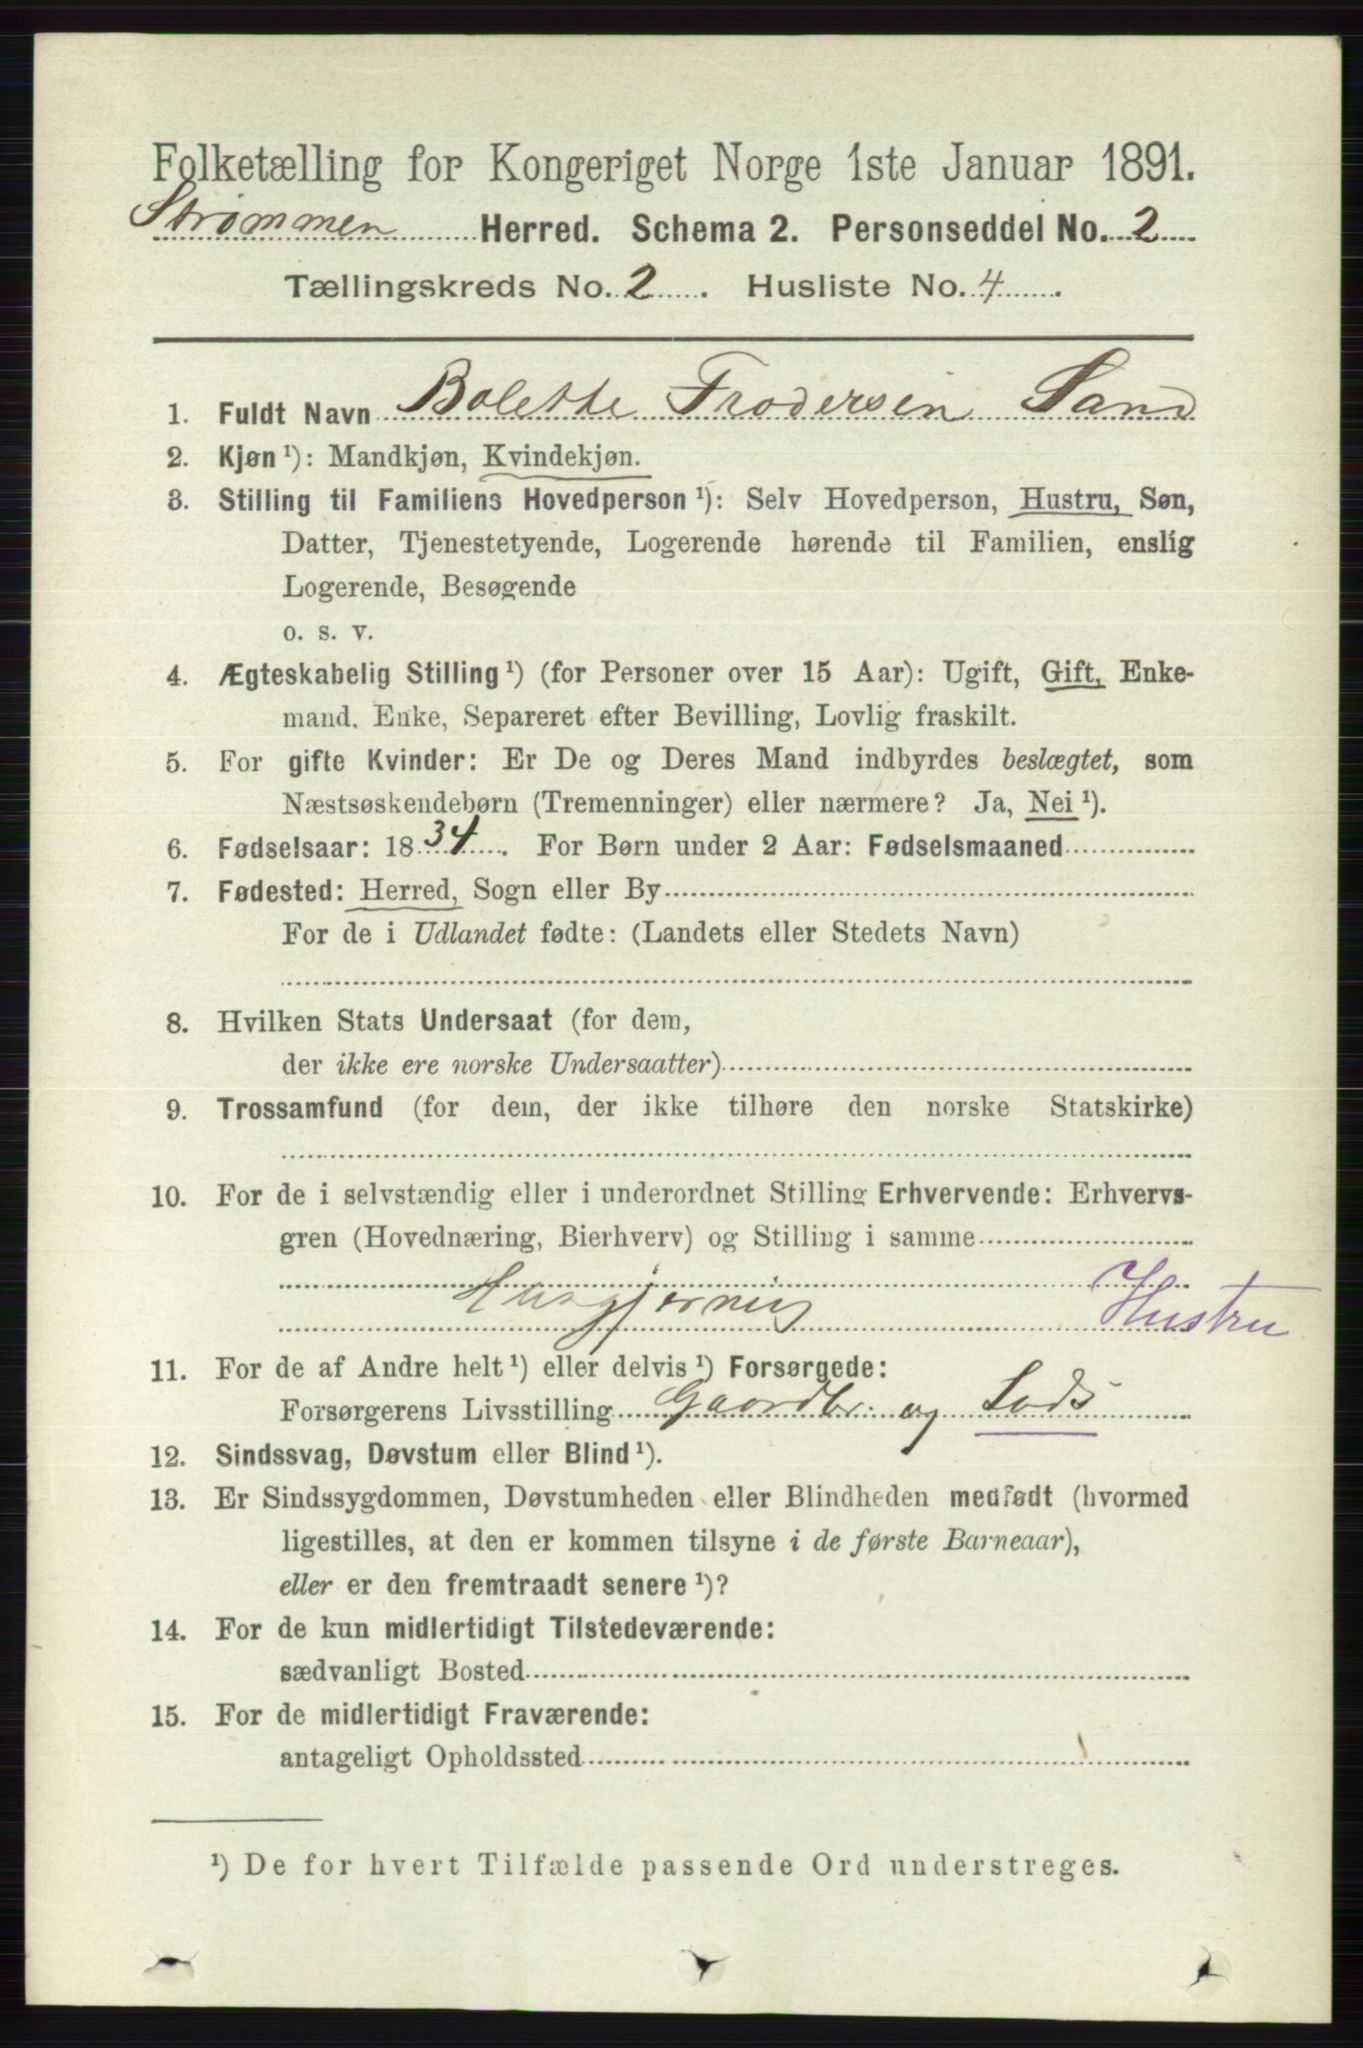 Folketælling for Kongeriget Norge 1ste Januar 1891.
Strømmen Herred. Schema 2. Personseddel No. 2
Tællingskreds No. 2. Husliste No. 4.
1. Fuldt Navn Bolette Frodersen Sand
2. Kjøn¹): Mandkjøn, Kvindekjøn.
3. Stilling til Familiens Hovedperson¹): Selv Hovedperson, Hustru, Søn,
Datter, Tjenestetyende, Logerende hørende til Familien, enslig
Logerende, Besøgende
o. s. v.
4. Ægteskabelig Stilling¹) (for Personer over 15 Aar): Ugift, Gift, Enke-
mand, Enke, Separeret efter Bevilling, Lovlig fraskilt.
5. For gifte Kvinder: Er De og Deres Mand indbyrdes beslægtet, som
Næstsøskendebørn (Tremenninger) eller nærmere? Ja, Nei¹).
6. Fødselsaar: 1834. For Børn under 2 Aar: Fødselsmaaned
7. Fødested: Herred, Sogn eller By
For de i Udlandet fødte: (Landets eller Stedets Navn)
8. Hvilken Stats Undersaat (for dem,
der ikke ere norske Undersaatter)
9. Trossamfund (for dem, der ikke tilhøre den norske Statskirke)
10. For de i selvstændig eller i underordnet Stilling Erhvervende: Erhvervs-
gren (Hovednæring, Bierhverv) og Stilling i samme
Husgjerning Hustru
11. For de af Andre helt¹) eller delvis¹) Forsørgede:
Forsørgerens Livsstilling Gaardbr. og Lods
12. Sindssvag, Døvstum eller Blind¹).
13. Er Sindssygdommen, Døvstumheden eller Blindheden medfødt (hvormed
ligestilles, at den er kommen tilsyne i de første Barneaar),
eller er den fremtraadt senere¹)?
14. For de kun midlertidigt Tilstedeværende:
sædvanligt Bosted
15. For de midlertidigt Fraværende:
antageligt Opholdssted
¹) De for hvert Tilfælde passende Ord understreges.